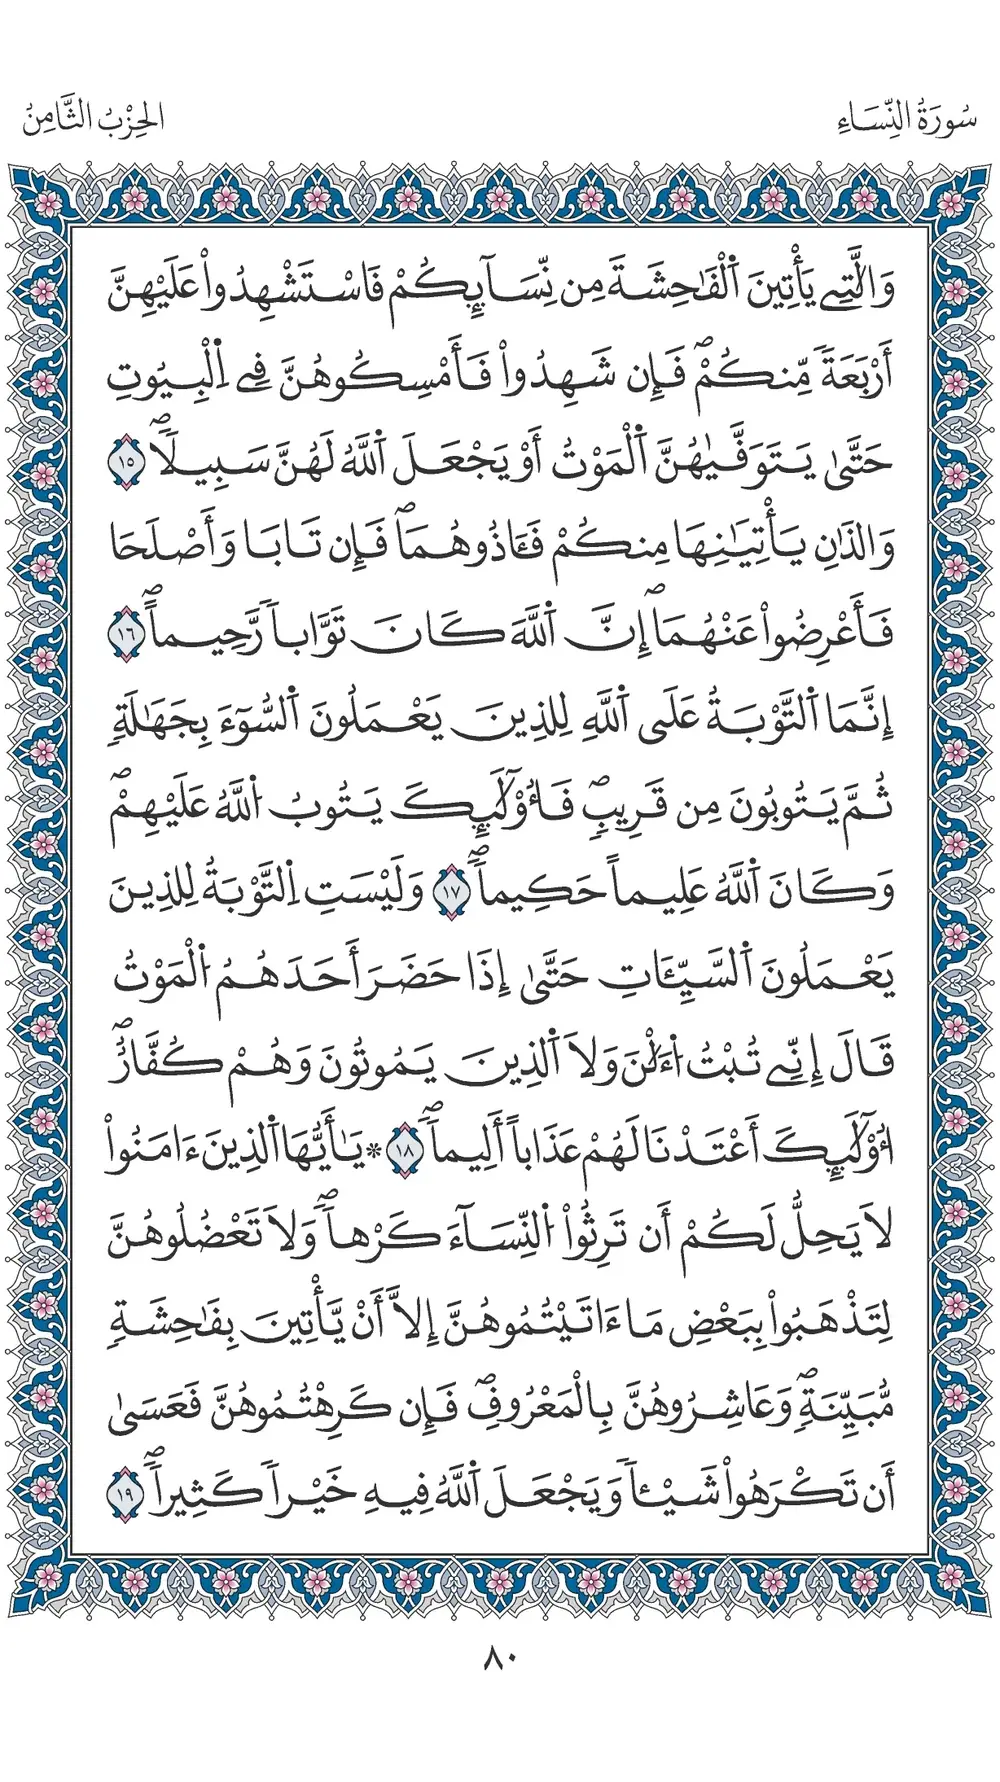 سُورَةُ النِّسَاءِ
الحِزْبُ الثَّامِنُ
وَالَّتِے يَأْتِينَ اَ۬لْفَٰحِشَةَ مِن نِّسَآئِكُمْ فَاسْتَشْهِدُواْ عَلَيْهِنَّ
أَرْبَعَةٗ مِّنكُمْۖ فَإِن شَهِدُواْ فَأَمْسِكُوهُنَّ فِے اِ۬لْبِيُوتِ
حَتَّىٰ يَتَوَفَّيٰهُنَّ اَ۬لْمَوْتُ أَوْ يَجْعَلَ اَ۬للَّهُ لَهُنَّ سَبِيلاٗۖ ١٥
وَالذَٰنِ يَأْتِيَٰنِهَا مِنكُمْ فَـَٔاذُوهُمَاۖ فَإِن تَابَا وَأَصْلَحَا
فَأَعْرِضُواْ عَنْهُمَاۖ إِنَّ اَ۬للَّهَ كَانَ تَوَّاباٗ رَّحِيماًۖ ١٦
إِنَّمَا اَ۬لتَّوْبَةُ عَلَى اَ۬للَّهِ لِلذِينَ يَعْمَلُونَ اَ۬لسُّوٓءَ بِجَهَٰلَةٖ
ثُمَّ يَتُوبُونَ مِن قَرِيبٖۖ فَأُوْلَٰٓئِكَ يَتُوبُ اُ۬للَّهُ عَلَيْهِمْۖ
وَكَانَ اَ۬للَّهُ عَلِيماً حَكِيماٗۖ ١٧ وَلَيْسَتِ اِ۬لتَّوْبَةُ لِلذِينَ
يَعْمَلُونَ اَ۬لسَّيِّـَٔاتِ حَتَّىٰ إِذَا حَضَرَ أَحَدَهُمُ اُ۬لْمَوْتُ
قَالَ إِنِّے تُبْتُ اُ۬لَٰٔنَ وَلَا اَ۬لذِينَ يَمُوتُونَ وَهُمْ كُفَّارٌۖ
اُوْلَٰٓئِكَ أَعْتَدْنَا لَهُمْ عَذَاباً أَلِيماٗۖ ١٨ ۞ يَٰأَيُّهَا اَ۬لذِينَ ءَامَنُواْ
لَا يَحِلُّ لَكُمْ أَن تَرِثُواْ اُ۬لنِّسَآءَ كَرْهاٗۖ وَلَا تَعْضُلُوهُنَّ
لِتَذْهَبُواْ بِبَعْضِ مَا ءَاتَيْتُمُوهُنَّ إِلَّا أَنْ يَّأْتِينَ بِفَٰحِشَةٖ
مُّبَيِّنَةٖۖ وَعَاشِرُوهُنَّ بِالْمَعْرُوفِۖ فَإِن كَرِهْتُمُوهُنَّ فَعَسَىٰ
أَن تَكْرَهُواْ شَيْـٔاٗ وَيَجْعَلَ اَ۬للَّهُ فِيهِ خَيْراٗ كَثِيراٗۖ ١٩
٨٠